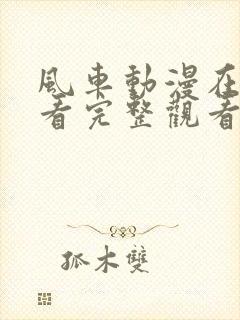 風車動漫在
看完整觀看
孤木雙